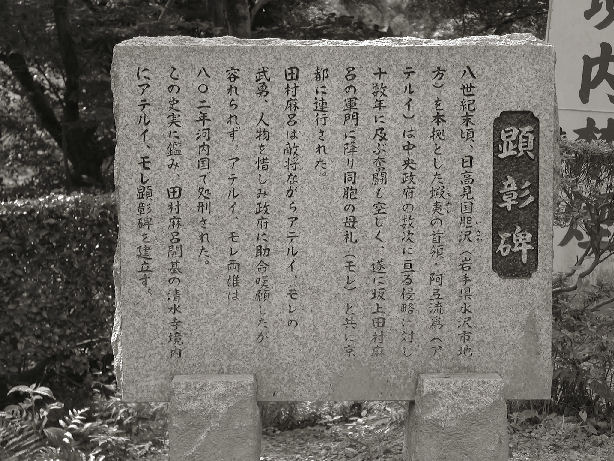 境内禁
顕彰碑
八世紀末頃、日高見国胆沢（岩手県水沢市地
いさわ
方）を本拠とした蝦夷の首領・阿弖流為（ア
テルイ）は中央政府の数次に亘る侵略に対し
十数年に及ぶ奮闘も空しく、遂に坂上田村麻
呂の軍門に降り同胞の母礼（モレ）と共に京
都に連行された。
田村麻呂は敵将ながらアテルイ、モレの
武勇、人物を惜しみ政府に助命嘆願したが
容れられず、アテルイ、モレ両雄は
八〇二年河内国で処刑された。
この史実に鑑み、田村麻呂開基の清水寺境内
にアテルイ、モレ顕彰碑を建立す。